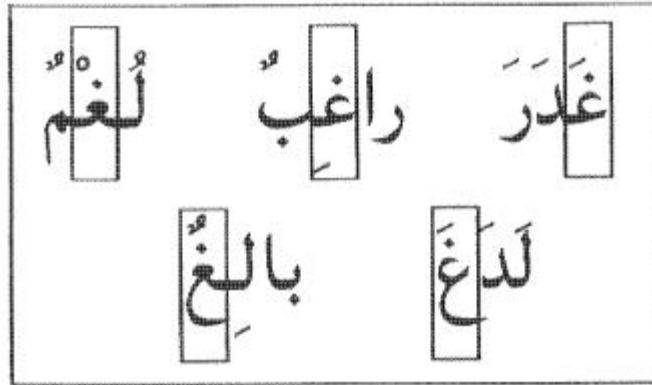 غَدَرَ راغِبٌ لُغْمٌ
لَدَغَ بالِغٌ